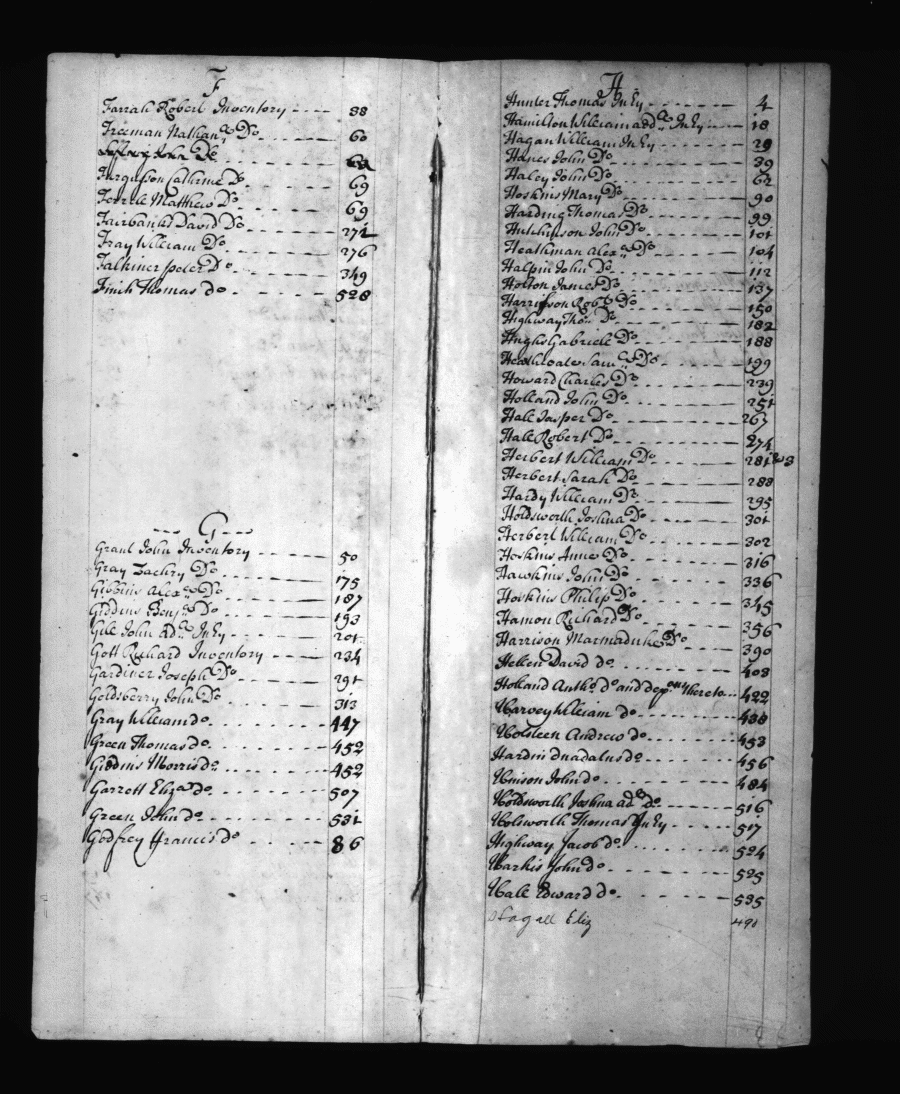 F
Farrah Robert Inventory ---- 38
Freeman Nathan.ll Do. 60
John Do
Ferguson Cathrine Do. 69
Matthew Do. 69
Fairbanks David Do 271
Fray William Do. 276
Falkiner Peter Do. 349
Finch Thomas do. 528
--- G ---
Grant John Inventory ---- 50
Gray Zachry Do. 175
Gibbins Alexr Do. 187
Giddens Benj.a Do. 193
Gile John ad.l InEy 201
Gott Richard Inventory ---- 234
Gardiner Joseph Do. 291
Goldsberry John Do 313
Gray William do. 447
Green Thomas do. 452
Giddins Morris do. 452
Garrett Eliza do. 507
Green John do. 531
Godfrey Francis do 86
H
Hunter Thomas InEy 4
Hamilton William add.l InEy 18
Hagan William InEy 29
Hanes John Do. 39
Haley John Do. 62
Hoskins Mary Do. 90
Harding Thomas Do. 99
Hutchinson John Do. 101
Heathman Alexr Do. 104
Halpin John Do. 112
Holton James Do. 137
Harrisson Robt Do 150
Highway Tho.s Do. 182
Hughs Gabriell Do. 188
Heathcoate Sam.ll Do 199
Howard Charles Do. 239
Holland John Do. 251
Hall Jasper Do. 267
Hale Robert Do. 274
Herbert William Do. 281 & 3
Herbert Sarah Do. 288
Hardy William Do. 295
Holdsworth Joshua Do. 301
Herbert William Do. 302
Hoskins Anne Do. 316
Hawkins John Do. 336
Hoskins Philip Do. 345
Hamon Richard Do. 356
Harrison Marmaduke Do 390
Hellen David do. 408
Holland Antho. do and dep.on thereto 422
Harvey William do. 438
Holsteen Andrew do. 453
Hardin do. 456
Hinson John do 484
Holdsworth Joshua ad.l do. 516
Holsworth Thomas InEy 517
Highway Jacob do. 524
Harkis John do 525
Hall Edward do. 535
Hagall Eliz 490